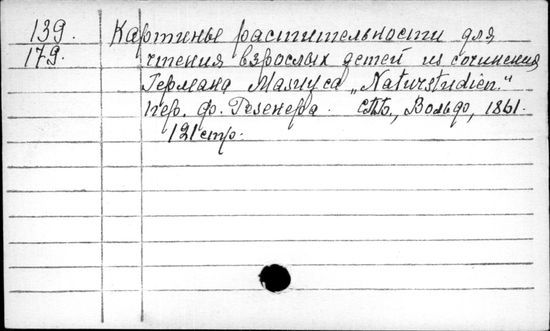 139. Картины растительности для
179. чтения взрослых детей из сочинения
Германа Мазиуса „Naturstudien."
Пер. Ф. Резенера. СПб., Вольф, 1861.
121 стр.